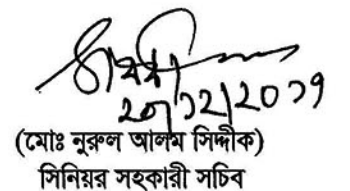 ২০/১২/২০১৭
(মোঃ নুরুল আলম সিদ্দীক)
সিনিয়র সহকারী সচিব